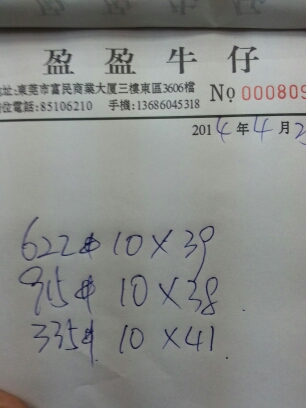 盈盈牛仔
地址:東莞市富民商業大厦三樓東區3606檔
檔位電話:85106210 手機:13686045318 No 000809
2014年4月2
622# 10×39
915# 10×38
335# 10×41